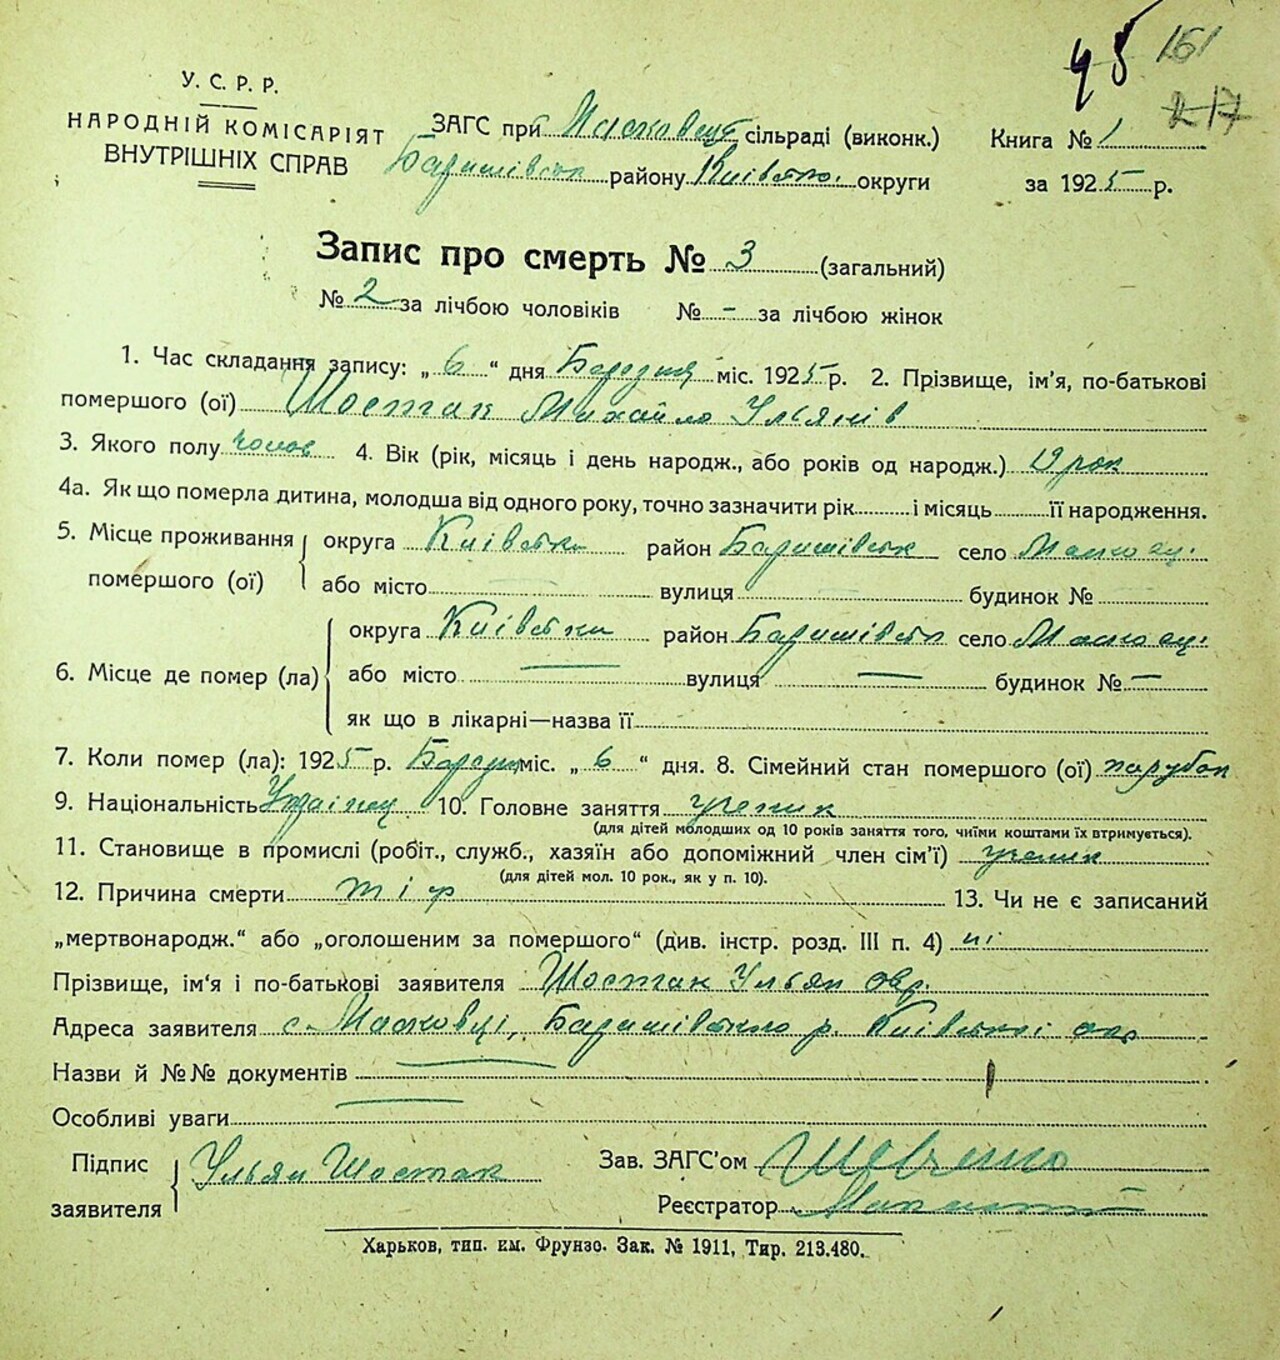 45 161
217
У. С. Р. Р.
НАРОДНІЙ КОМІСАРІЯТ
ВНУТРІШНІХ СПРАВ
ЗАГС при сільраді (виконк.)
Баришівськ району Київськ. округи
Книга № 1
за 1925 р.
Запис про смерть № 3 (загальний)
№ 2 за лічбою чоловіків № - за лічбою жінок
1. Час складання запису: „ 6 “ дня Березня міс. 1925 р. 2. Прізвище, ім’я, по-батькові
помершого (ої) Шостак Михайло Ульянів
3. Якого полу чолов 4. Вік (рік, місяць і день народж., або років од народж.) 19 рок
4а. Як що померла дитина, молодша від одного року, точно зазначити рік і місяць її народження.
5. Місце проживання помершого (ої) округа Київська район Баришівськ село
або місто вулиця будинок №
6. Місце де помер (ла) округа Київська район Баришівськ село
або місто — вулиця — будинок № —
як що в лікарні—назва її
7. Коли помер (ла): 1925 р. Березня міс. „ 6 “ дня. 8. Сімейний стан помершого (ої) парубок
9. Національність Українец 10. Головне заняття ученик
(для дітей молодших од 10 років заняття того, чиїми коштами їх втримується).
11. Становище в промислі (робіт., служб., хазяїн або допоміжний член сім’ї) ученик
(для дітей мол. 10 рок., як у п. 10).
12. Причина смерти тіф 13. Чи не є записаний
„мертвонародж.“ або „оголошеним за помершого“ (див. інстр. розд. III п. 4) ні
Прізвище, ім’я і по-батькові заявителя Шостак Ульян
Адреса заявителя с. Масковці, Баришівського р. Київської окр
Назви й №№ документів —
Особливі уваги —
Підпис заявителя Ульян Шостак
Зав. ЗАГС’ом Шевченко
Реєстратор
Харьков, тип. им. Фрунзе. Зак. № 1911, Тир. 213.480.